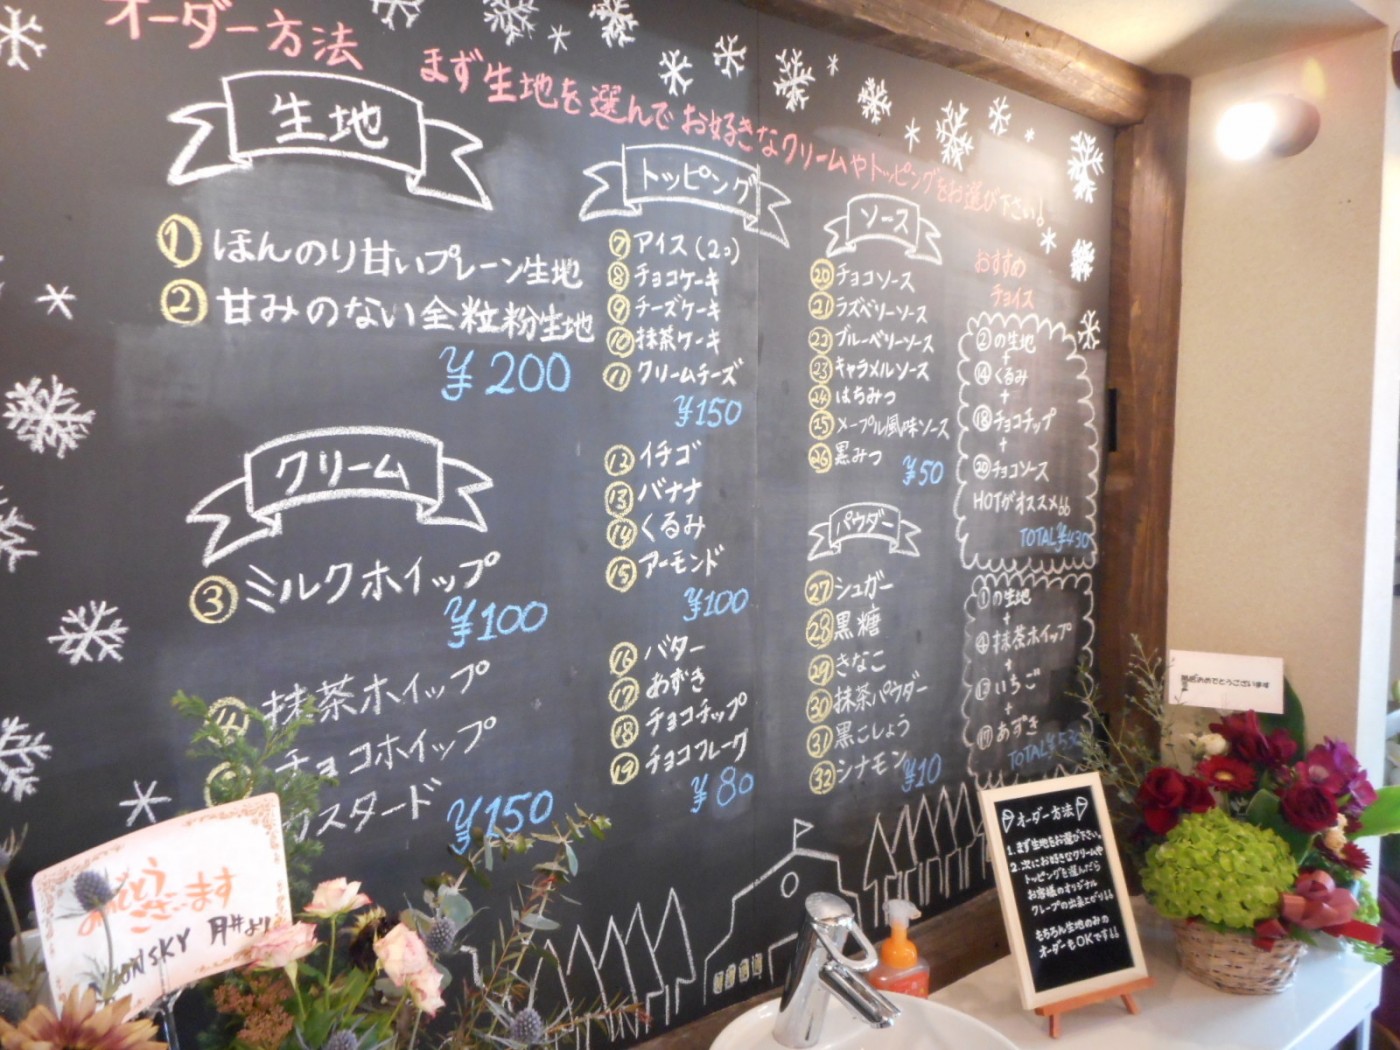 オーダー方法
まず生地を選んでお好きなクリームやトッピングをお選び下さい!
生地
① ほんのり甘いプレーン生地
② 甘みのない全粒粉生地
¥200
クリーム
③ ミルクホイップ
¥100
④ 抹茶ホイップ
チョコホイップ
カスタード
¥150
トッピング
⑦ アイス(2コ)
⑧ チョコケーキ
⑨ チーズケーキ
⑩ 抹茶ケーキ
⑪ クリームチーズ
¥150
⑫ イチゴ
⑬ バナナ
⑭ くるみ
⑮ アーモンド
¥100
⑯ バター
⑰ あずき
⑱ チョコチップ
⑲ チョコフレーク
¥80
ソース
⑳ チョコソース
㉑ ラズベリーソース
㉒ ブルーベリーソース
㉓ キャラメルソース
㉔ はちみつ
㉕ メープル風味ソース
㉖ 黒みつ
¥50
パウダー
㉗ シュガー
㉘ 黒糖
㉙ きなこ
㉚ 抹茶パウダー
㉛ 黒こしょう
㉜ シナモン
¥10
おすすめ
チョイス
②の生地
+
⑭くるみ
+
⑱チョコチップ
+
⑳チョコソース
HOTがオススメ
TOTAL ¥430
①の生地
+
④抹茶ホイップ
+
いちご
+
⑰あずき
TOTAL ¥530
オーダー方法
1. まず生地をお選び下さい。
2. 次にお好きなクリームや
トッピングを選んだら
お客様のオリジナル
クレープの出来上がり!!
もちろん生地のみの
オーダーもOKです!!
おめでとうございます
おめでとう
ございます
MOONSKY
より